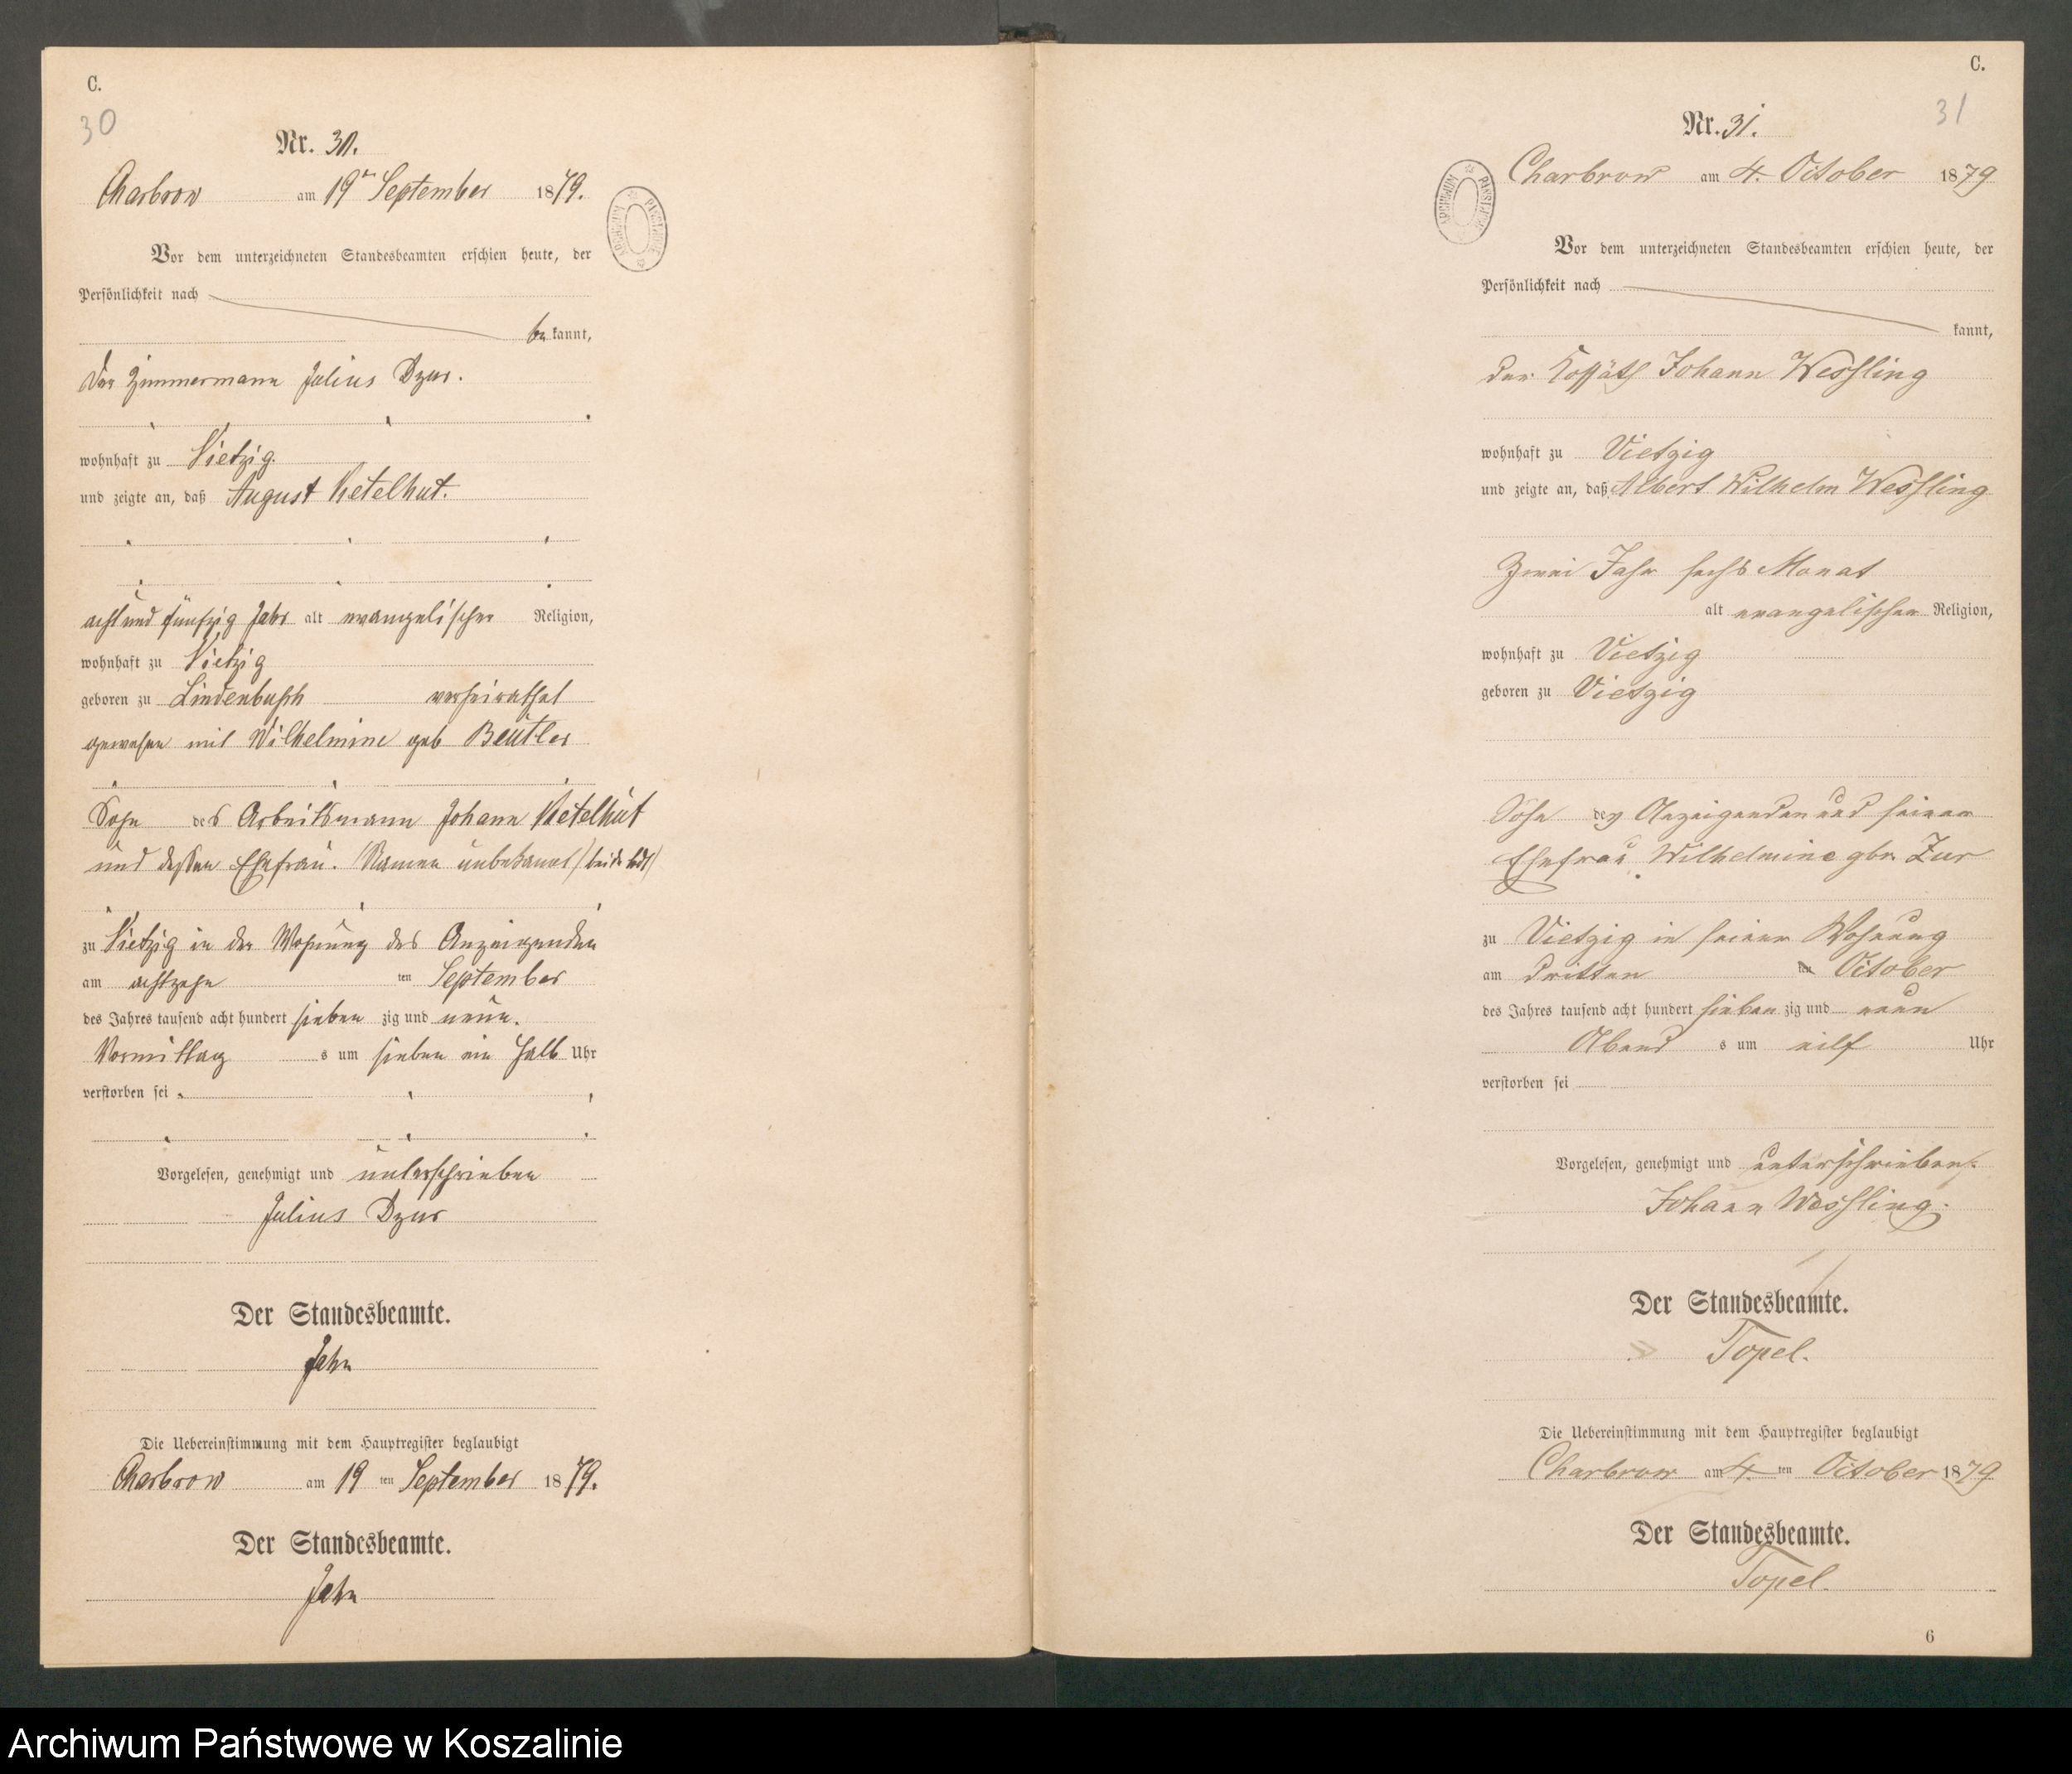 C.
30
Nr. 30.
Charbrow am 19ten September 1879.
Vor dem unterzeichneten Standesbeamten erschien heute, der
Persönlichkeit nach
be kannt,
der Zimmermann Julius Dzur.
wohnhaft zu Vietzig
und zeigte an, daß August Ketelhut.
acht und fünfzig Jahr alt evangelischer Religion,
wohnhaft zu Vietzig
geboren zu Lindenbusch verheirathet
gewesen mit Wilhelmine geb Beutler
Sohn des Arbeitsmann Johann Ketelhut
und dessen Ehefrau. Namen unbekannt /beide todt/
zu Vietzig in der Wohnung des Anzeigenden
am achtzehn ten September
des Jahres tausend acht hundert sieben zig und neun.
Vormittag s um sieben ein halb Uhr
verstorben sei
Vorgelesen, genehmigt und unterschrieben
Julius Dzur
Der Standesbeamte.
Jahn
Die Uebereinstimmung mit dem Hauptregister beglaubigt
Charbrow am 19 ten September 1879.
Der Standesbeamte.
Jahn
C.
31
Nr. 31.
Charbrow am 4. October 1879
Vor dem unterzeichneten Standesbeamten erschien heute, der
Persönlichkeit nach
kannt,
der Kossäth Johann Wessling
wohnhaft zu Vietzig
und zeigte an, daß Albert Wilhelm Wessling
Zwei Jahr sechs Monat
alt evangelischer Religion,
wohnhaft zu Vietzig
geboren zu Vietzig
Sohn des Anzeigenden und seiner
Ehefrau Wilhelmine gbr. Zur
zu Vietzig in seiner Wohnung
am dritten ten October
des Jahres tausend acht hundert sieben zig und neun
Abend s um eilf Uhr
verstorben sei
Vorgelesen, genehmigt und unterschrieben.
Johann Wessling.
Der Standesbeamte.
Topel.
Die Uebereinstimmung mit dem Hauptregister beglaubigt
Charbrow am 4 ten October 1879
Der Standesbeamte.
Topel.
6
Archiwum Państwowe w Koszalinie